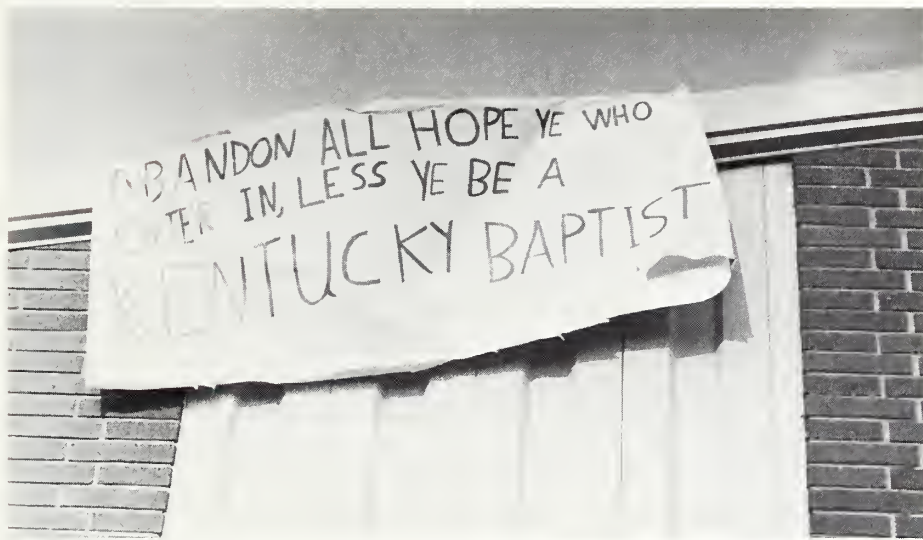 ABANDON ALL HOPE YE WHO
ENTER IN, LESS YE BE A
KENTUCKY BAPTIST